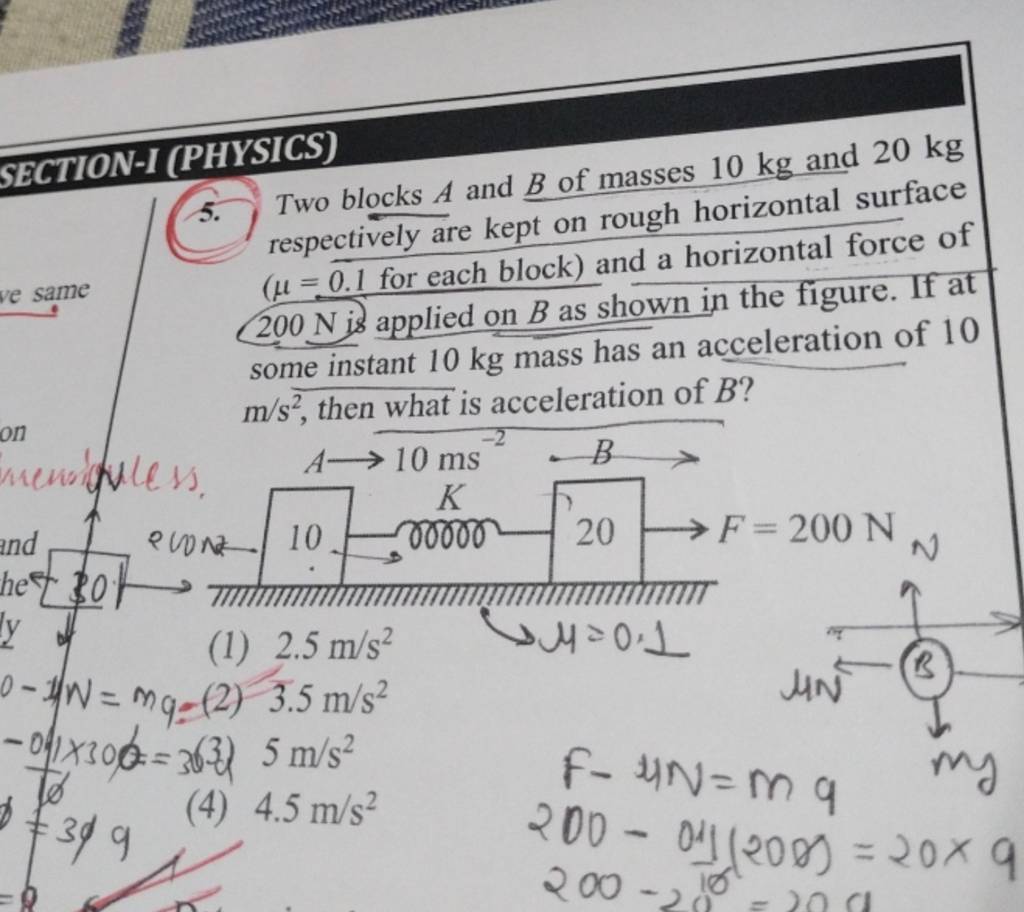 SECTION-I (PHYSICS)
5. Two blocks A and B of masses 10 kg and 20 kg
respectively are kept on rough horizontal surface
(μ = 0.1 for each block) and a horizontal force of
200 N is applied on B as shown in the figure. If at
some instant 10 kg mass has an acceleration of 10
m/s², then what is acceleration of B?
ve same
on
and
he
ly
A → 10 ms⁻²
B
K
10
20
F = 200 N
30
N
μ = 0.1
(1) 2.5 m/s²
(2) 3.5 m/s²
(3) 5 m/s²
(4) 4.5 m/s²
0 - μN = ma
= 30a
N
B
μN
mg
F - μN = ma
200 - 0.1(200) = 20 × a
200 - 20 = 20 a